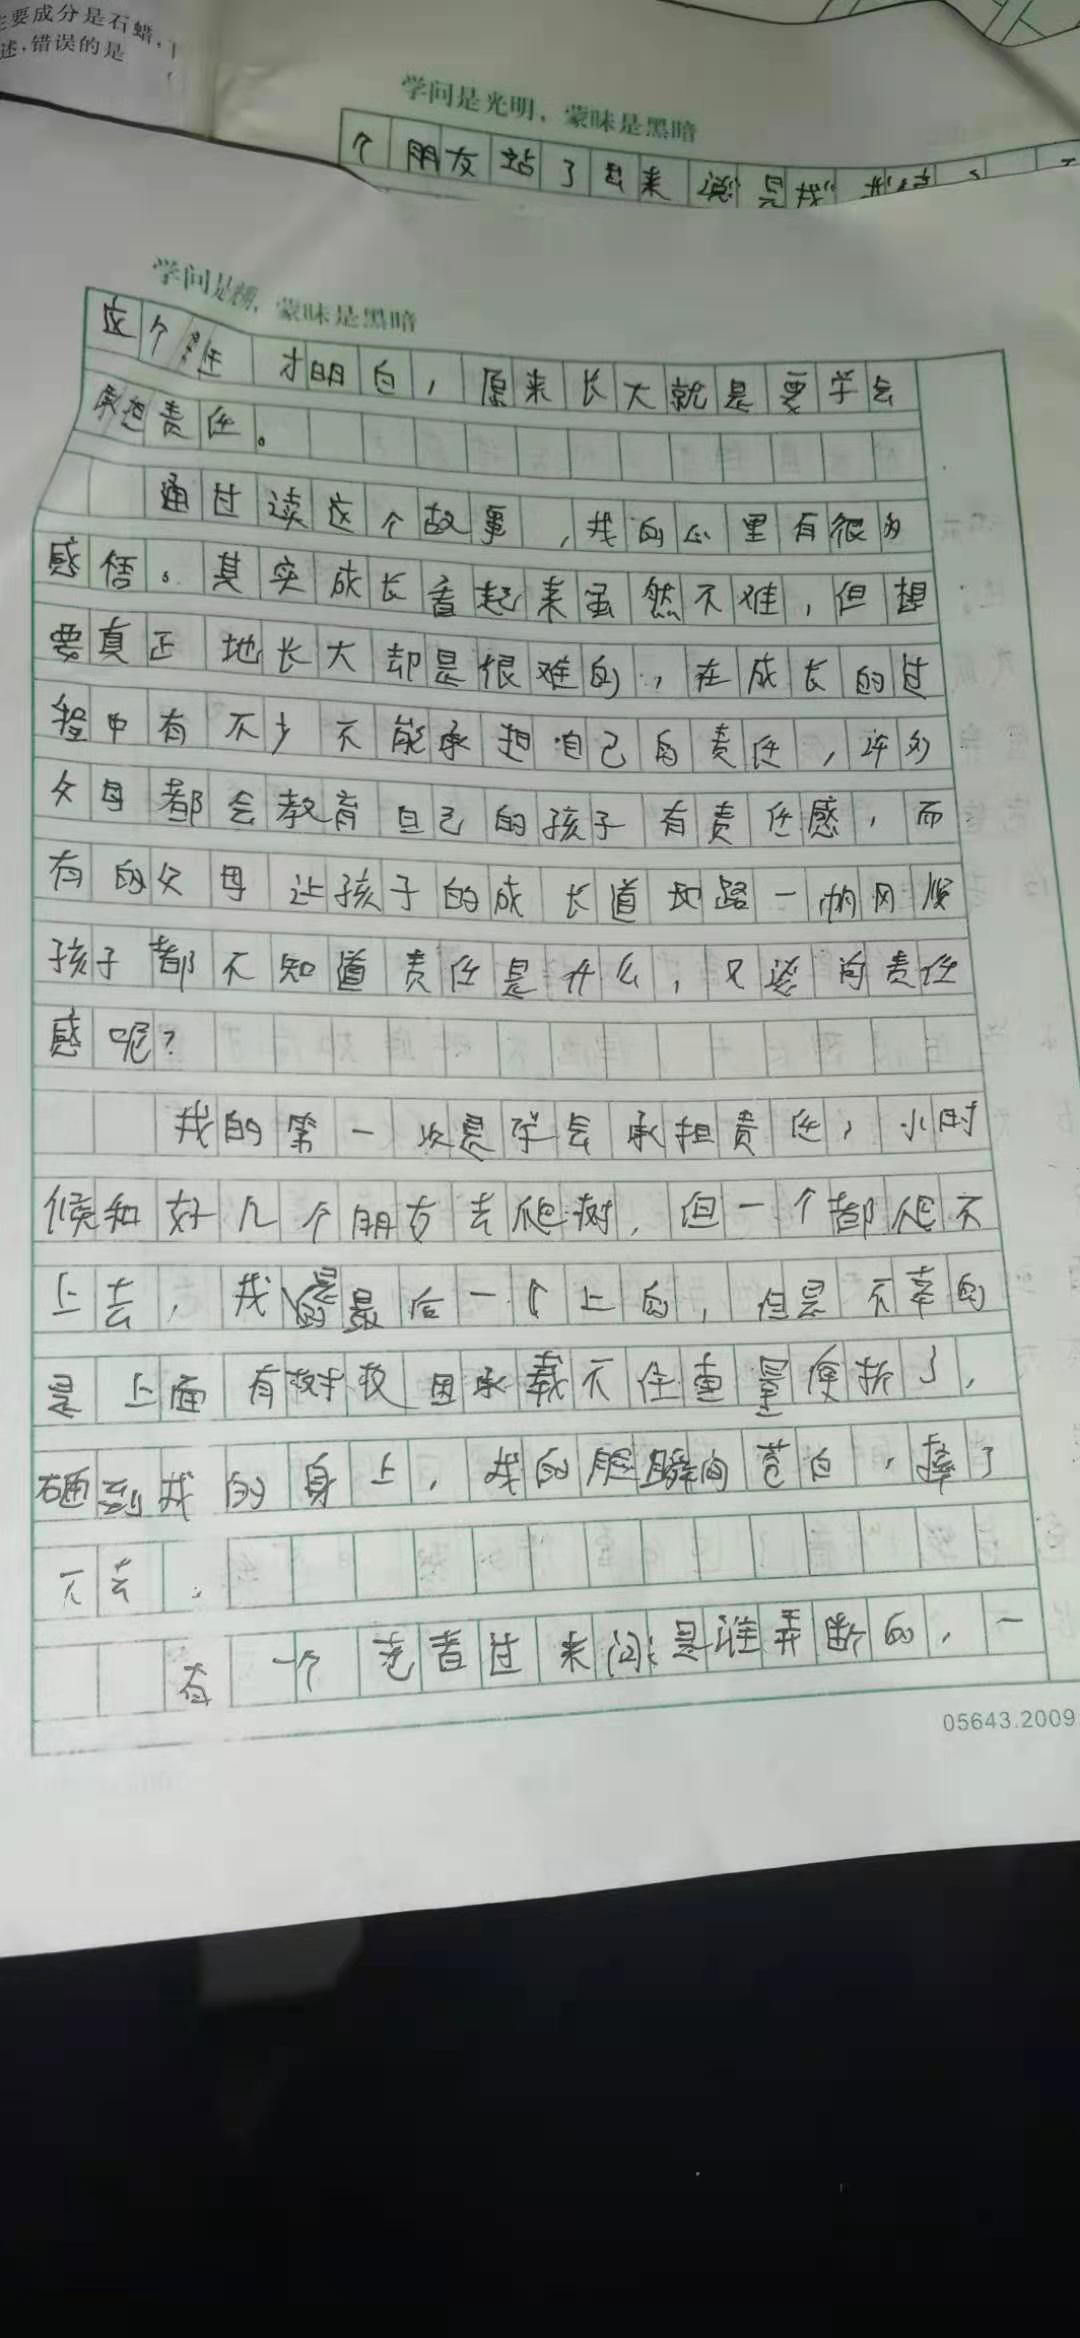 主要成分是石蜡，
述，错误的是
学问是光明，蒙昧是黑暗
个朋友站了起来说是我
学问是光明，蒙昧是黑暗
这个 才明白，原来长大就是要学会
承担责任。
通过读这个故事，我的心里有很多
感悟。其实成长看起来虽然不难，但想
要真正地长大却是很难的，在成长的过
程中有不少不能承担自己的责任，许多
父母都会教育自己的孩子有责任感，而
有的父母让孩子的成长道地路一帆风顺
孩子都不知道责任是什么，又谈何责任
感呢？
我的第一次是学会承担责任，小时
候和好几个朋友去爬树，但一个都爬不
上去，我是最后一个上的，但是不幸的
是上面有树枝因承载不住重量便折了，
砸到我的身上，我的脸瞬间苍白，摔了
下去．
有一个老者过来问：是谁弄断的，一
05643.2009